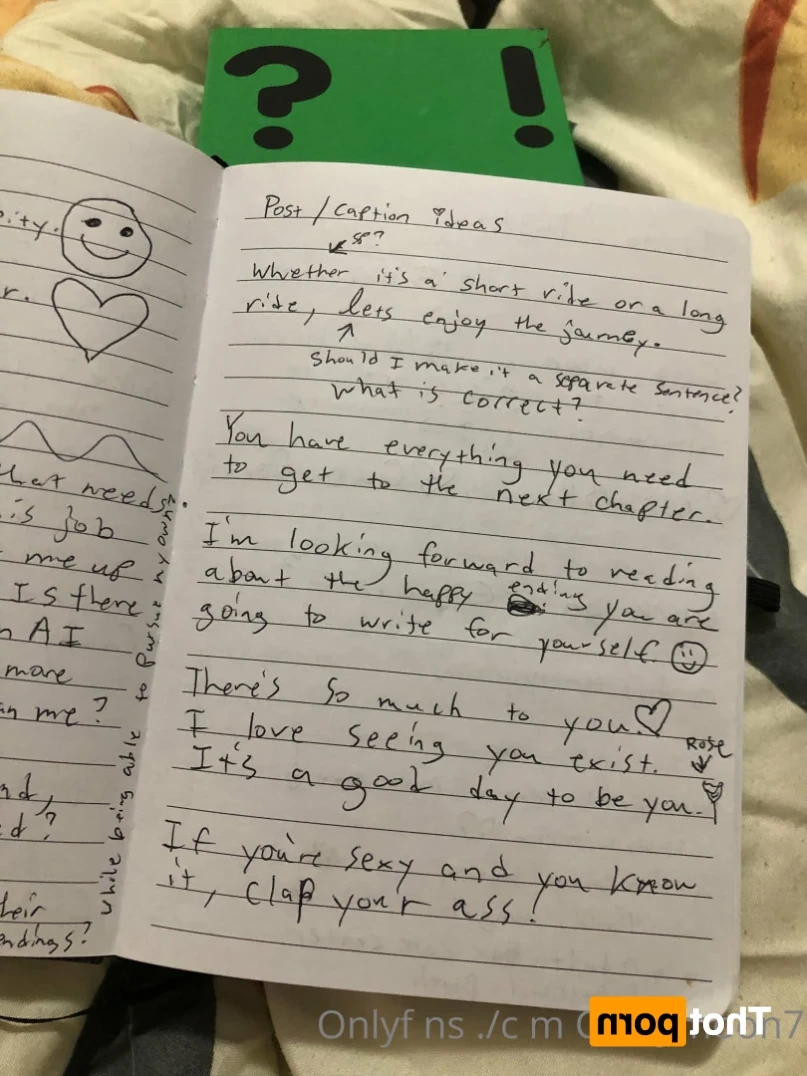 ? !
Post / Caption ideas
sp?
Whether it's a short ride or a long
ride, lets enjoy the journey.
Should I make it a separate sentence?
What is correct?
You have everything you need
to get to the next chapter.
I'm looking forward to reading
about the happy ending you are
going to write for yourself.
There's so much to you.
I love seeing you exist.
Rose
It's a good day to be you.
If you're sexy and you know
it, clap your ass!
ity.
r.
that needs
is job
me up
Is there
AI
more
me?
d?
their
endings?
while being able to pursue my own?
Onlyf ns ./c m
Thot porn